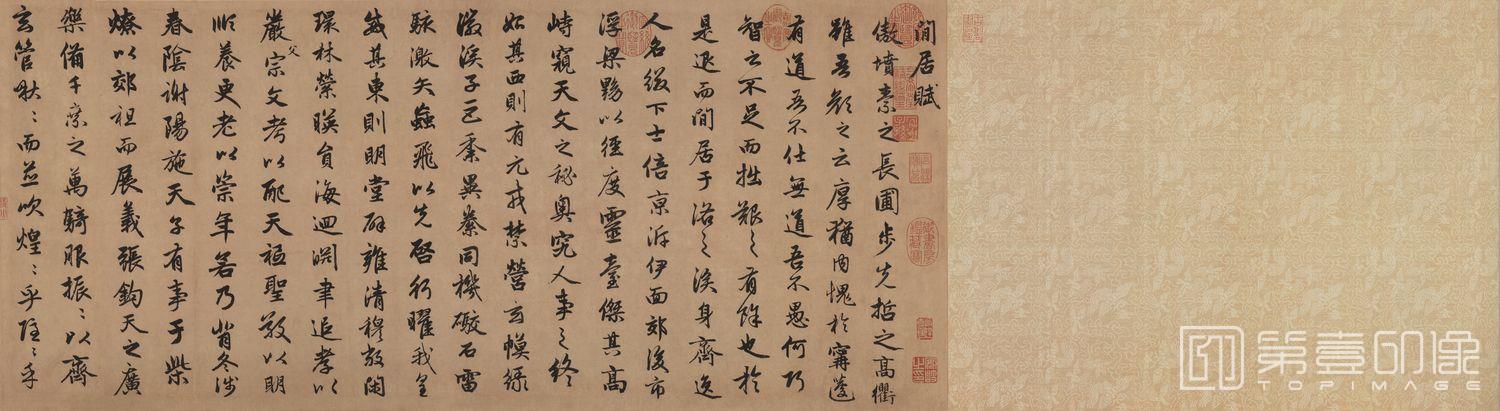 閒居賦
傲墳素之長圃步先哲之高衢
雖吾顏之云厚猶內愧於甯蘧
有道吾不仕無道吾不愚何巧
智之不足而拙艱之有餘也於
是退而閒居于洛之涘身齊逸
人名綴下士倍京泝伊面郊後市
浮梁黝以徑度靈臺傑其高
峙窺天文之秘奧究人事之終
始其西則有元戎禁營玄幙綠
徽溪子巨黍異絭同機礮石雷
駭激矢蝱飛以先啓行曜我皇
威其東則明堂辟雍清穆敞閑
環林縈暎員海迴淵聿追孝以
嚴父宗文考以配天祗聖敬以明
順養更老以崇年若乃背冬涉
春陰謝陽施天子有事于柴
燎以郊祖而展義張鈞天之廣
樂備千乘之萬騎服振〻以齊
玄管啾〻而並吹煌〻乎隱〻乎
第壹印像
TOPIMAGE